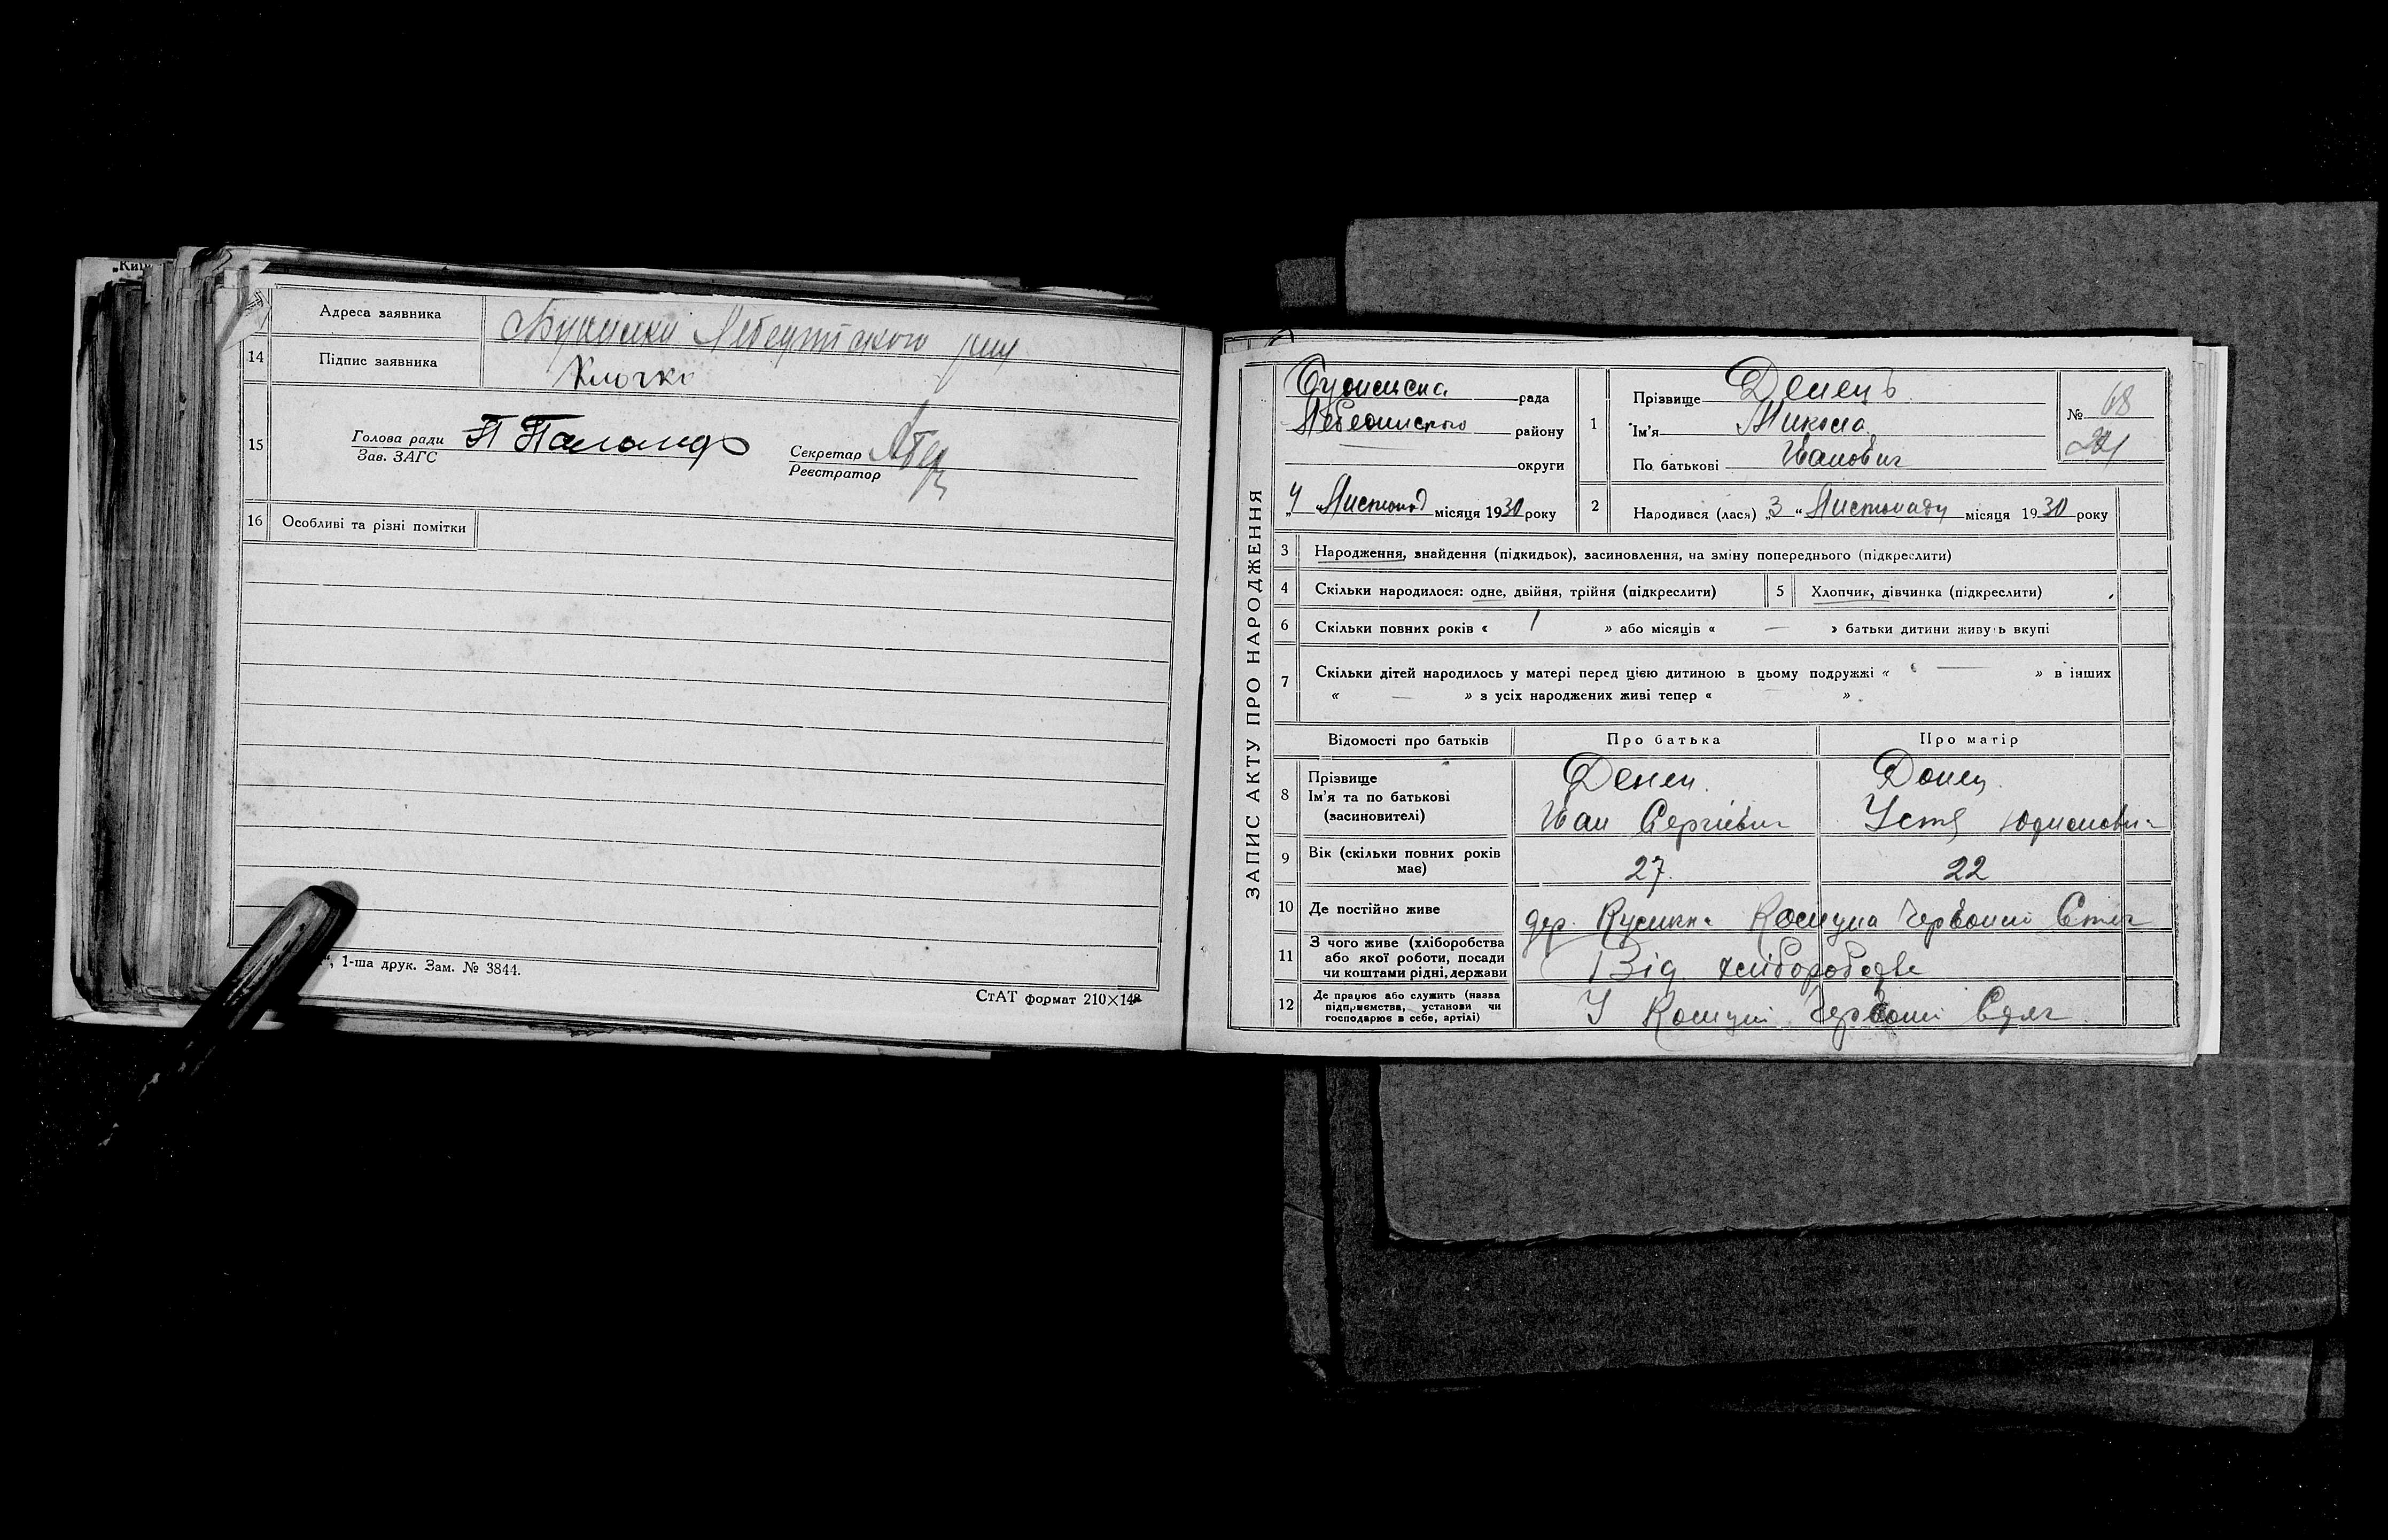 „Київ
Адреса заявника
Лебединського рай
14 Підпис заявника Клочко
15 Голова ради
Зав. ЗАГС
Секретар
Реєстратор
16 Особливі та різні помітки
", 1-ша друк. Зам. № 3844.
СтАТ формат 210×148
ЗАПИС АКТУ ПРО НАРОДЖЕННЯ
рада
Лебединського району
округи
„4 Листопад місяця 1930 року
1 Прізвище Донець
Ім'я Микола
По батькові Иванович
№ 68
2 Народився (лася) „3 “ Листопаду місяця 1930 року
3 Народження, знайдення (підкидьок), засиновлення, на зміну попереднього (підкреслити)
4 Скільки народилося: одне, двійня, трійня (підкреслити) 5 Хлопчик, дівчинка (підкреслити)
6 Скільки повних років « 1 » або місяців « — » батьки дитини живуть вкупі
7 Скільки дітей народилось у матері перед цією дитиною в цьому подружжі « — » в інших
« — » з усіх народжених живі тепер « — ».
Відомості про батьків Про батька Про матір
8 Прізвище Донец Донец
Ім'я та по батькові
(засиновителі) Иван Сергієвич Устя
9 Вік (скільки повних років має) 27 22
10 Де постійно живе дер. Комуна Червоний Стяг
11 З чого живе (хліборобства
або якої роботи, посади
чи коштами рідні, держави Від хліборобства
12 Де працює або служить (назва
підприємства, установи чи
господарює в себе, артілі) У Комуні Червоний Стяг